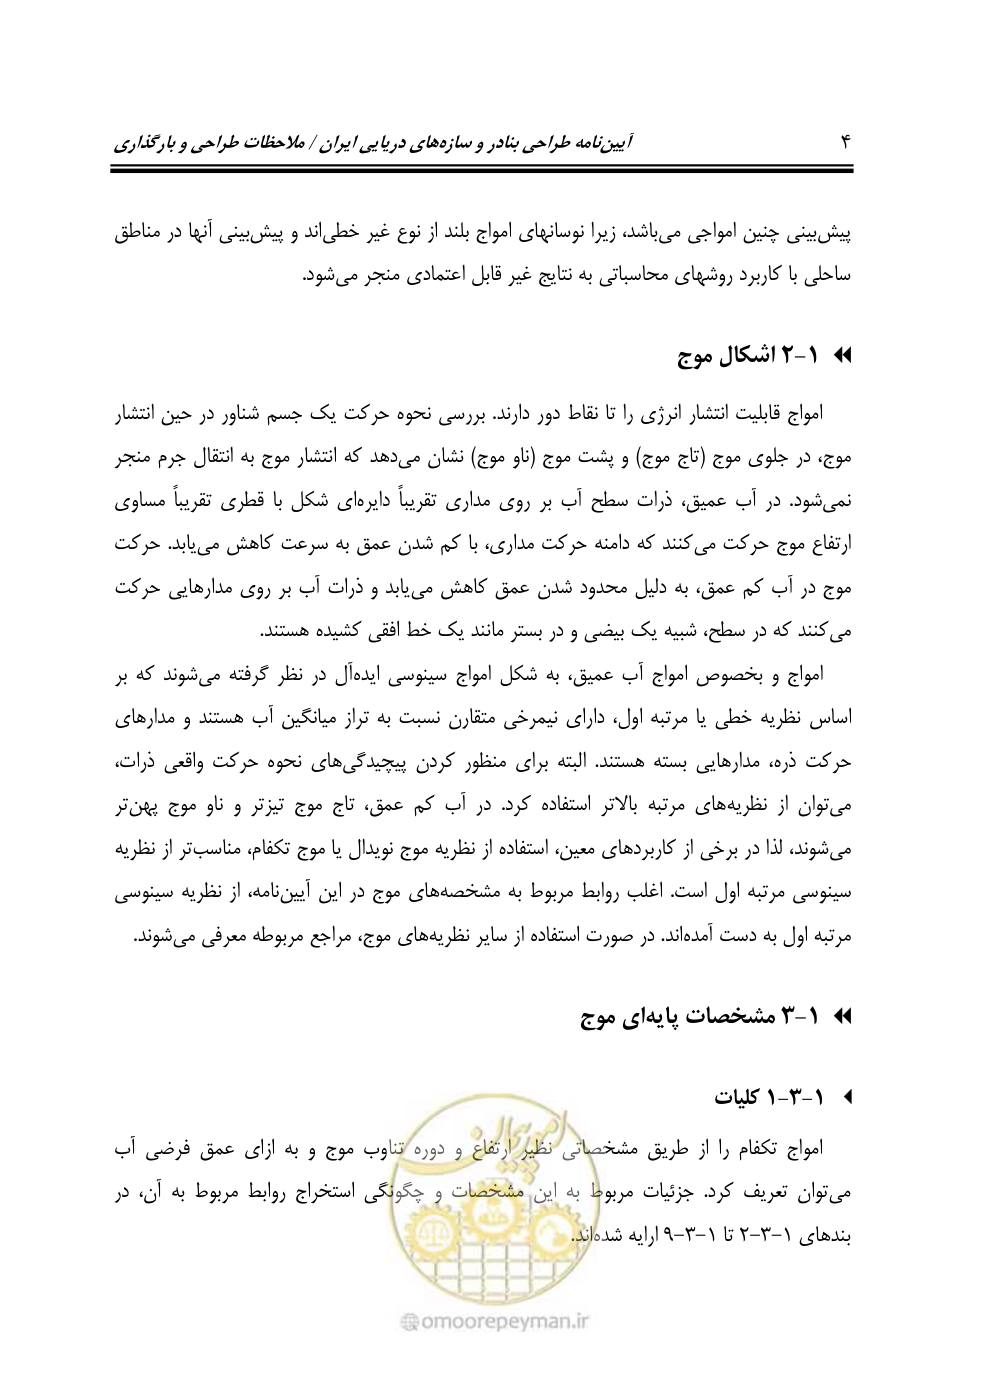 ۴
آیین‌نامه طراحی بنادر و سازه‌های دریایی ایران / ملاحظات طراحی و بارگذاری
پیش‌بینی چنین امواجی می‌باشد، زیرا نوسانهای امواج بلند از نوع غیر خطی‌اند و پیش‌بینی آنها در مناطق
ساحلی با کاربرد روشهای محاسباتی به نتایج غیر قابل اعتمادی منجر می‌شود.
۱-۲ اشکال موج
امواج قابلیت انتشار انرژی را تا نقاط دور دارند. بررسی نحوه حرکت یک جسم شناور در حین انتشار
موج، در جلوی موج (تاج موج) و پشت موج (ناو موج) نشان می‌دهد که انتشار موج به انتقال جرم منجر
نمی‌شود. در آب عمیق، ذرات سطح آب بر روی مداری تقریباً دایره‌ای شکل با قطری تقریباً مساوی
ارتفاع موج حرکت می‌کنند که دامنه حرکت مداری، با کم شدن عمق به سرعت کاهش می‌یابد. حرکت
موج در آب کم عمق، به دلیل محدود شدن عمق کاهش می‌یابد و ذرات آب بر روی مدارهایی حرکت
می‌کنند که در سطح، شبیه یک بیضی و در بستر مانند یک خط افقی کشیده هستند.
امواج و بخصوص امواج آب عمیق، به شکل امواج سینوسی ایده‌آل در نظر گرفته می‌شوند که بر
اساس نظریه خطی یا مرتبه اول، دارای نیمرخی متقارن نسبت به تراز میانگین آب هستند و مدارهای
حرکت ذره، مدارهایی بسته هستند. البته برای منظور کردن پیچیدگی‌های نحوه حرکت واقعی ذرات،
می‌توان از نظریه‌های مرتبه بالاتر استفاده کرد. در آب کم عمق، تاج موج تیزتر و ناو موج پهن‌تر
می‌شوند، لذا در برخی از کاربردهای معین، استفاده از نظریه موج نویدال یا موج تکفام، مناسب‌تر از نظریه
سینوسی مرتبه اول است. اغلب روابط مربوط به مشخصه‌های موج در این آیین‌نامه، از نظریه سینوسی
مرتبه اول به دست آمده‌اند. در صورت استفاده از سایر نظریه‌های موج، مراجع مربوطه معرفی می‌شوند.
۱-۳ مشخصات پایه‌ای موج
۱-۳-۱ کلیات
امواج تکفام را از طریق مشخصاتی نظیر ارتفاع و دوره تناوب موج و به ازای عمق فرضی آب
می‌توان تعریف کرد. جزئیات مربوط به این مشخصات و چگونگی استخراج روابط مربوط به آن، در
بندهای ۱-۳-۲ تا ۱-۳-۹ ارایه شده‌اند.
امور پیمان
omoorepeyman.ir